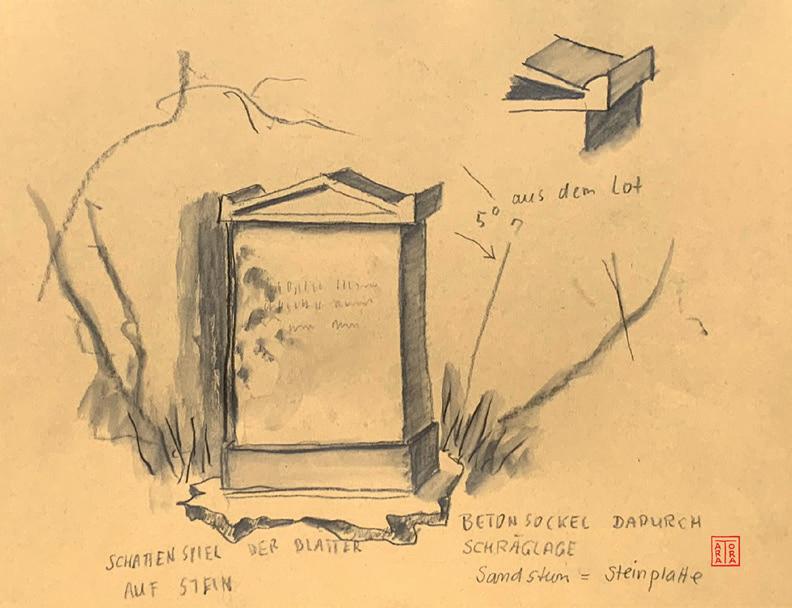 aus dem Lot
5°
SCHATTENSPIEL DER BLÄTTER
AUF STEIN
BETONSOCKEL DADURCH
SCHRÄGLAGE
Sandstein = Steinplatte
ARA
TORA